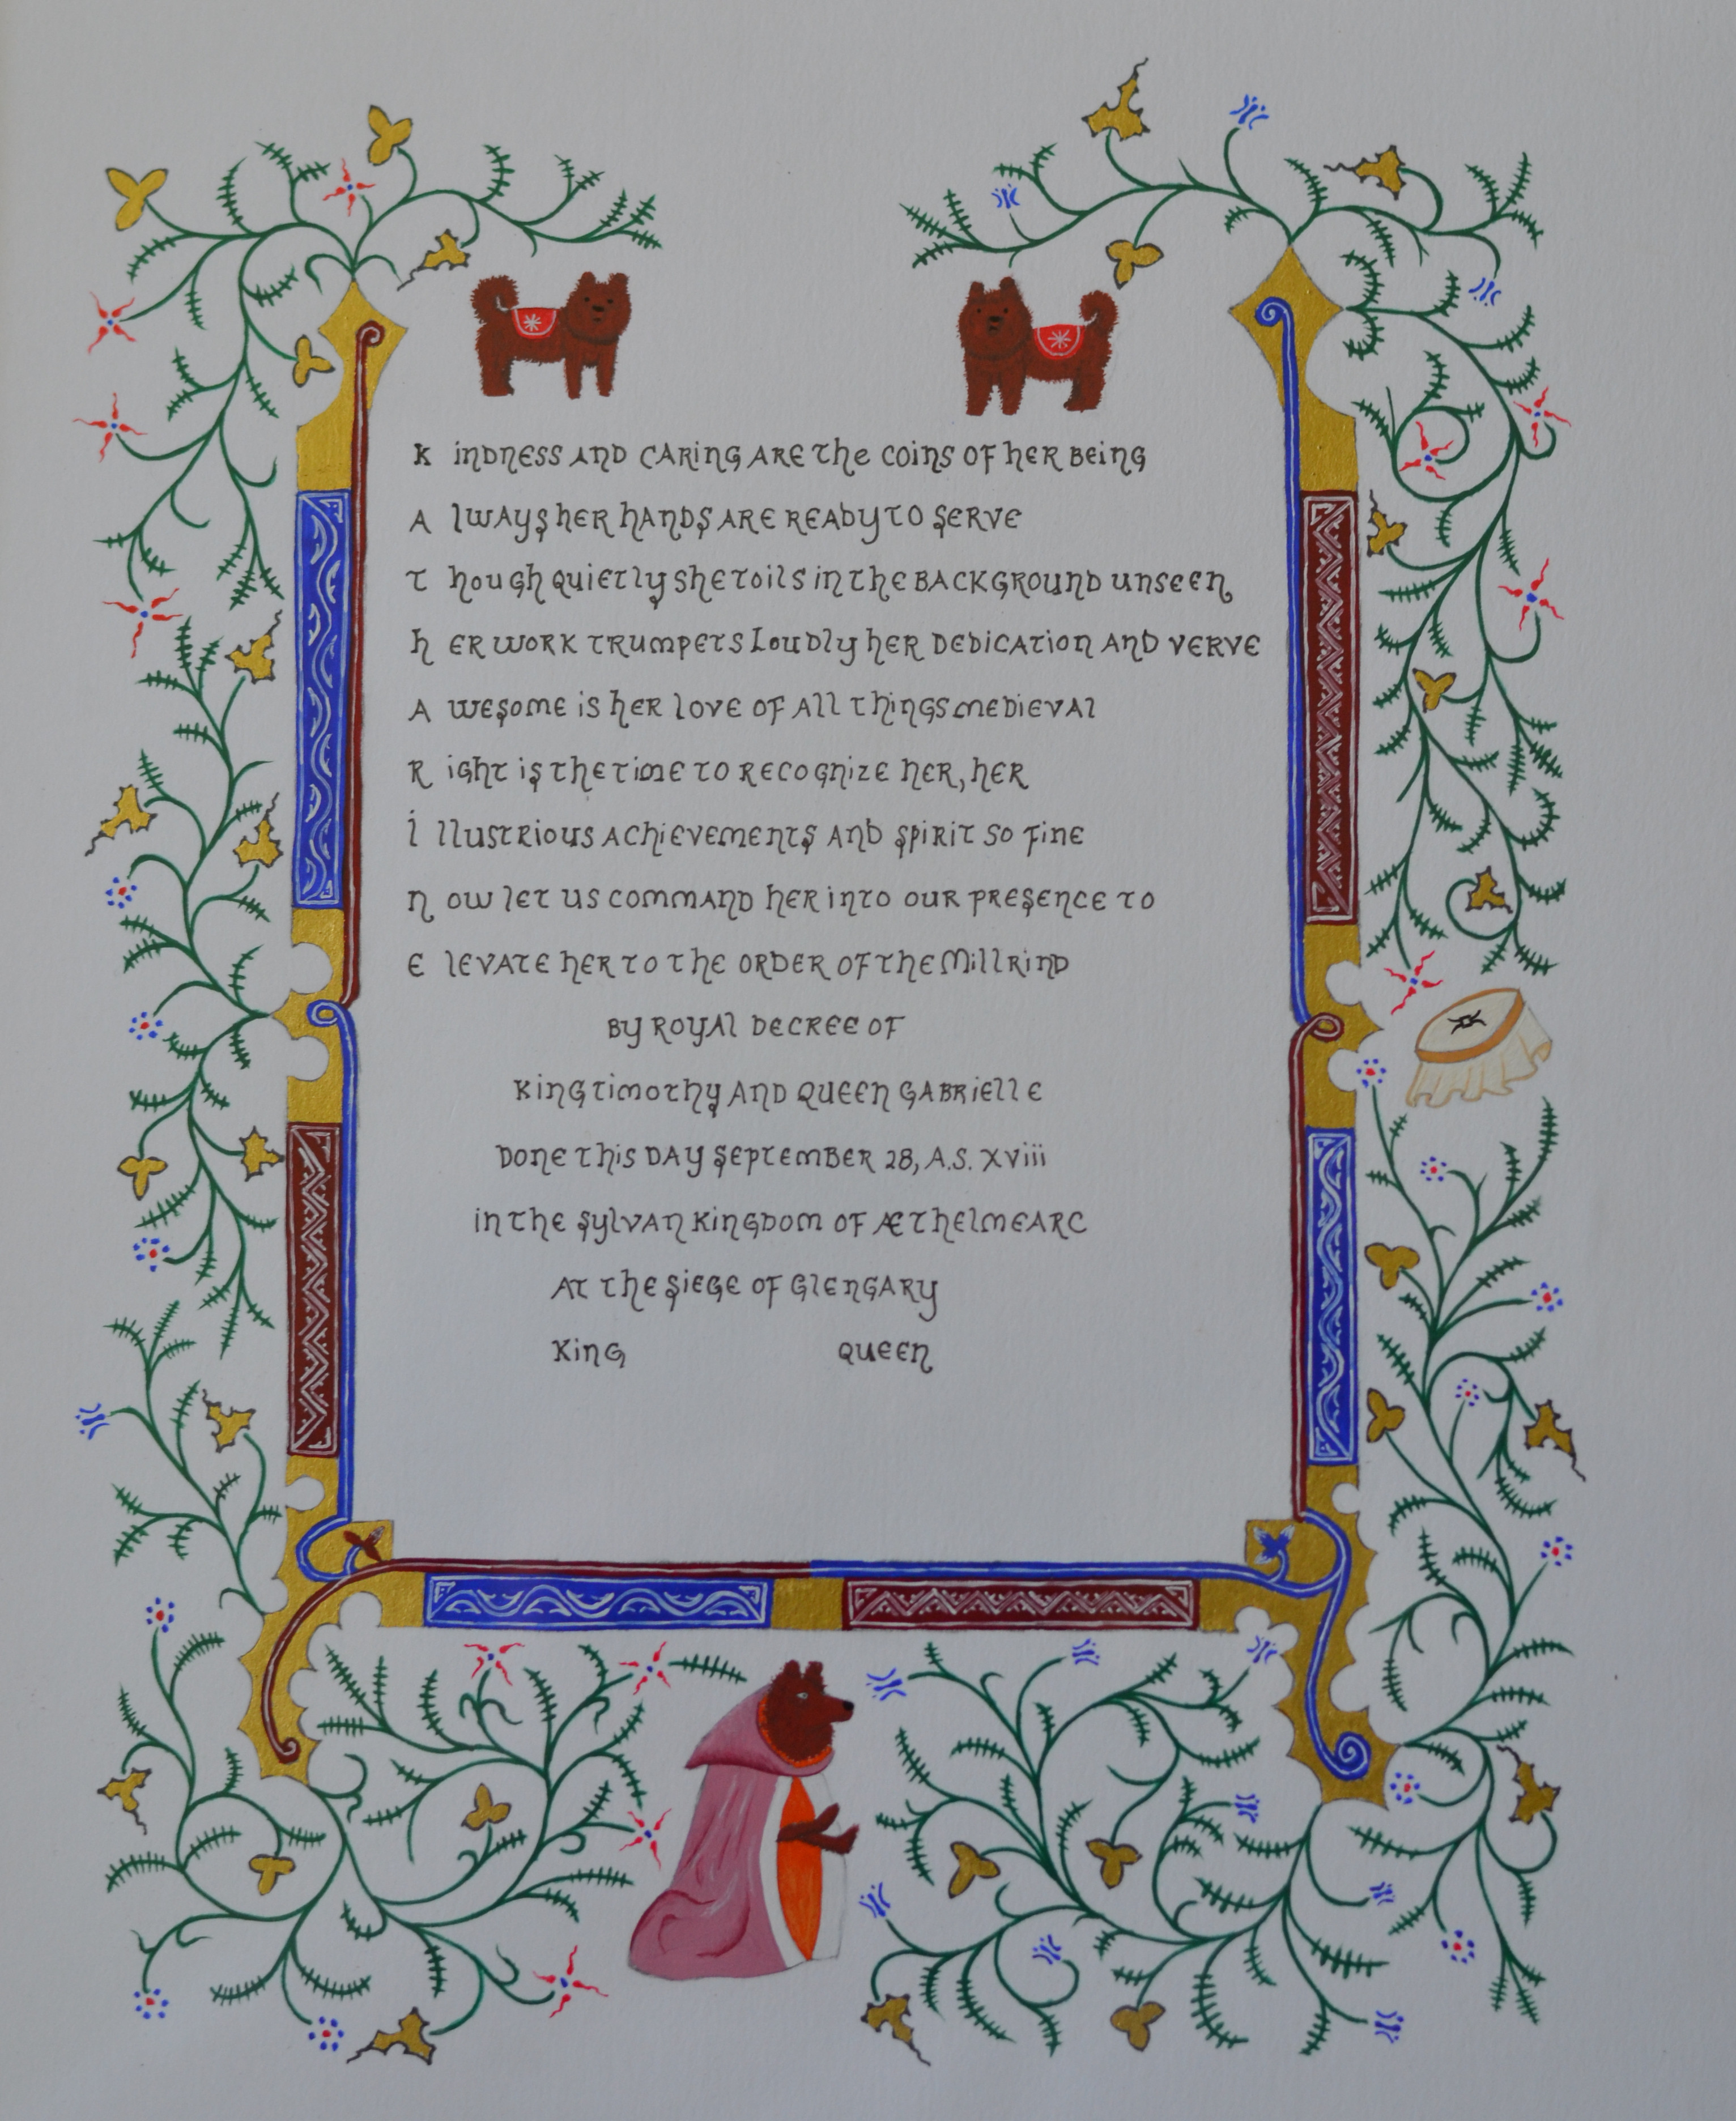 Kindness and caring are the coins of her being
Always her hands are ready to serve
Though quietly she toils in the background unseen
Her work trumpets loudly her dedication and verve
Awesome is her love of all things medieval
Right is the time to recognize her, her
Illustrious achievements and spirit so fine
Now let us command her into our presence to
Elevate her to the Order of the Millrind
By Royal decree of
King Timothy and Queen Gabrielle
Done this day September 28, A.S. XViii
in the Sylvan Kingdom of Æthelmearc
At the Siege of Glengary
King Queen